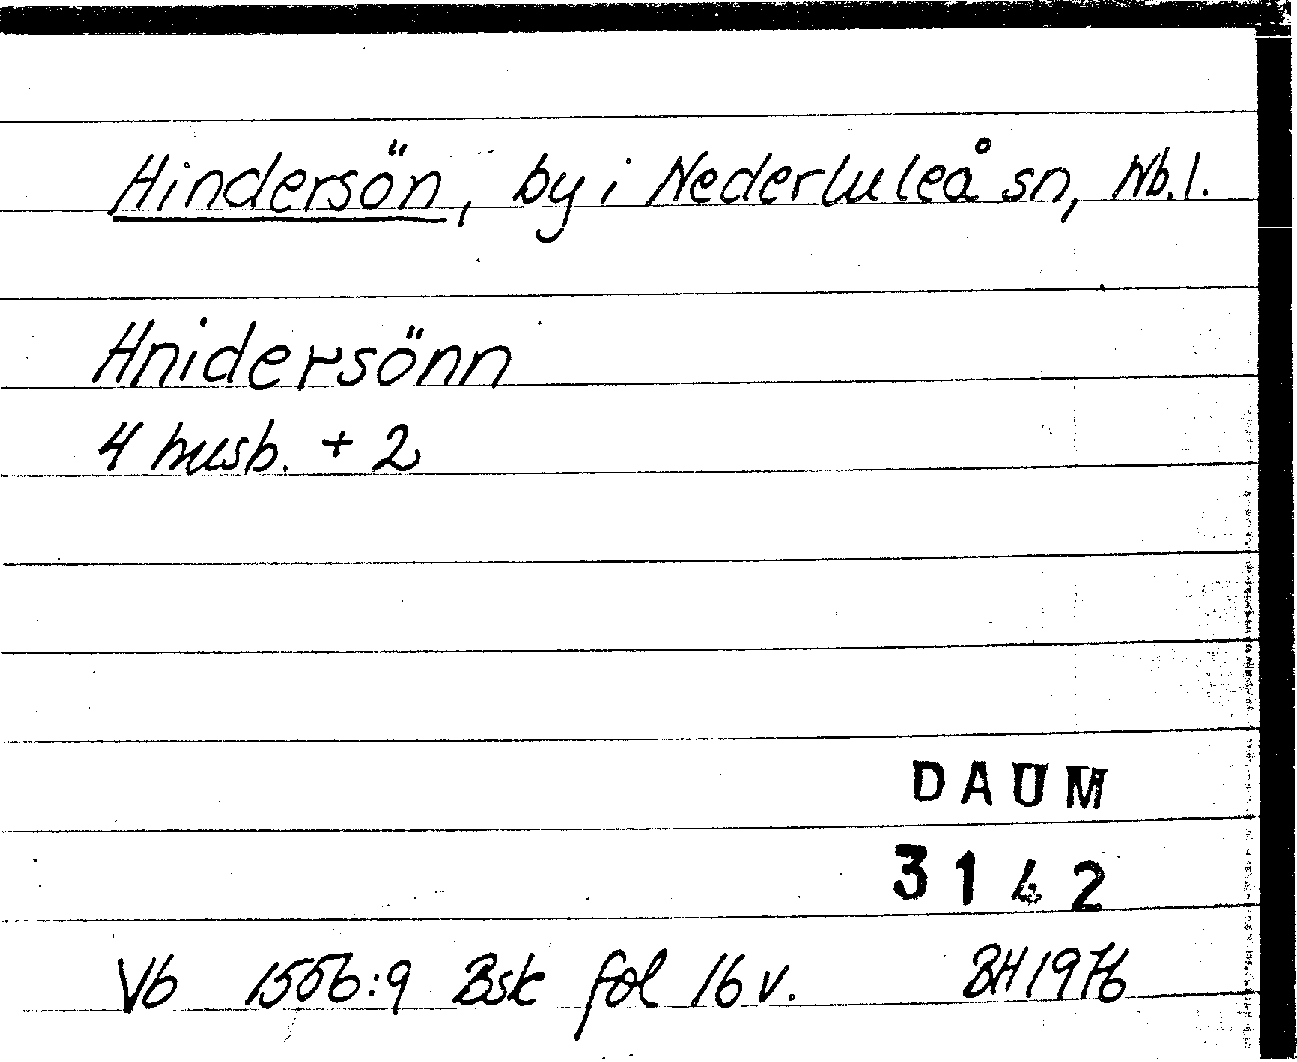 Hindersön, by i Nederluleå sn, Nb.l.
Hnidersönn
4 husb. + 2
DAUM
3142
Vb 1556:9 Bsk fol 16 v. BH 1976